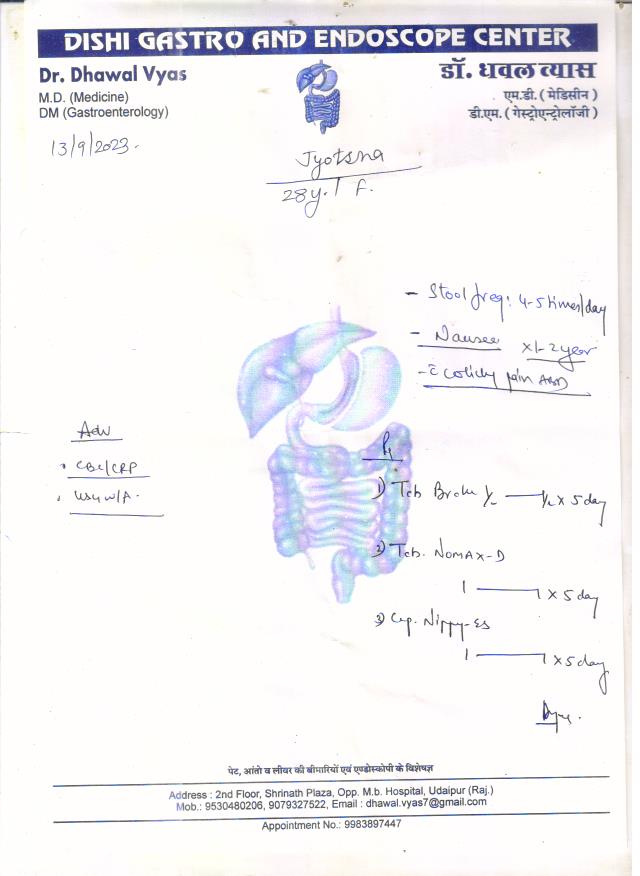 DISHI GASTRO AND ENDOSCOPE CENTER
Dr. Dhawal Vyas
M.D. (Medicine)
DM (Gastroenterology)
डॉ. धवल व्यास
एम.डी. ( मेडिसीन )
डी.एम. ( गेस्ट्रोएन्ट्रोलॉजी )
13/9/2023.
Jyotsna
28y. / F.
- Stool freq: 4-5 times/day
- Nausee x1-2 year
- c̄ colicky pain ABD
Adv
• CBC/CRP
• USG W/A.
Rx
1) Tab ½ — ½ x 5 day
2) Tab. NOMAX-D
1 — 1 x 5 day
3) Cap. Nippy-ES
1 — 1 x 5 day
पेट, आंतो व लीवर की बीमारियों एवं एण्डोस्कोपी के विशेषज्ञ
Address : 2nd Floor, Shrinath Plaza, Opp. M.b. Hospital, Udaipur (Raj.)
Mob.: 9530480206, 9079327522, Email : dhawal.vyas7@gmail.com
Appointment No.: 9983897447